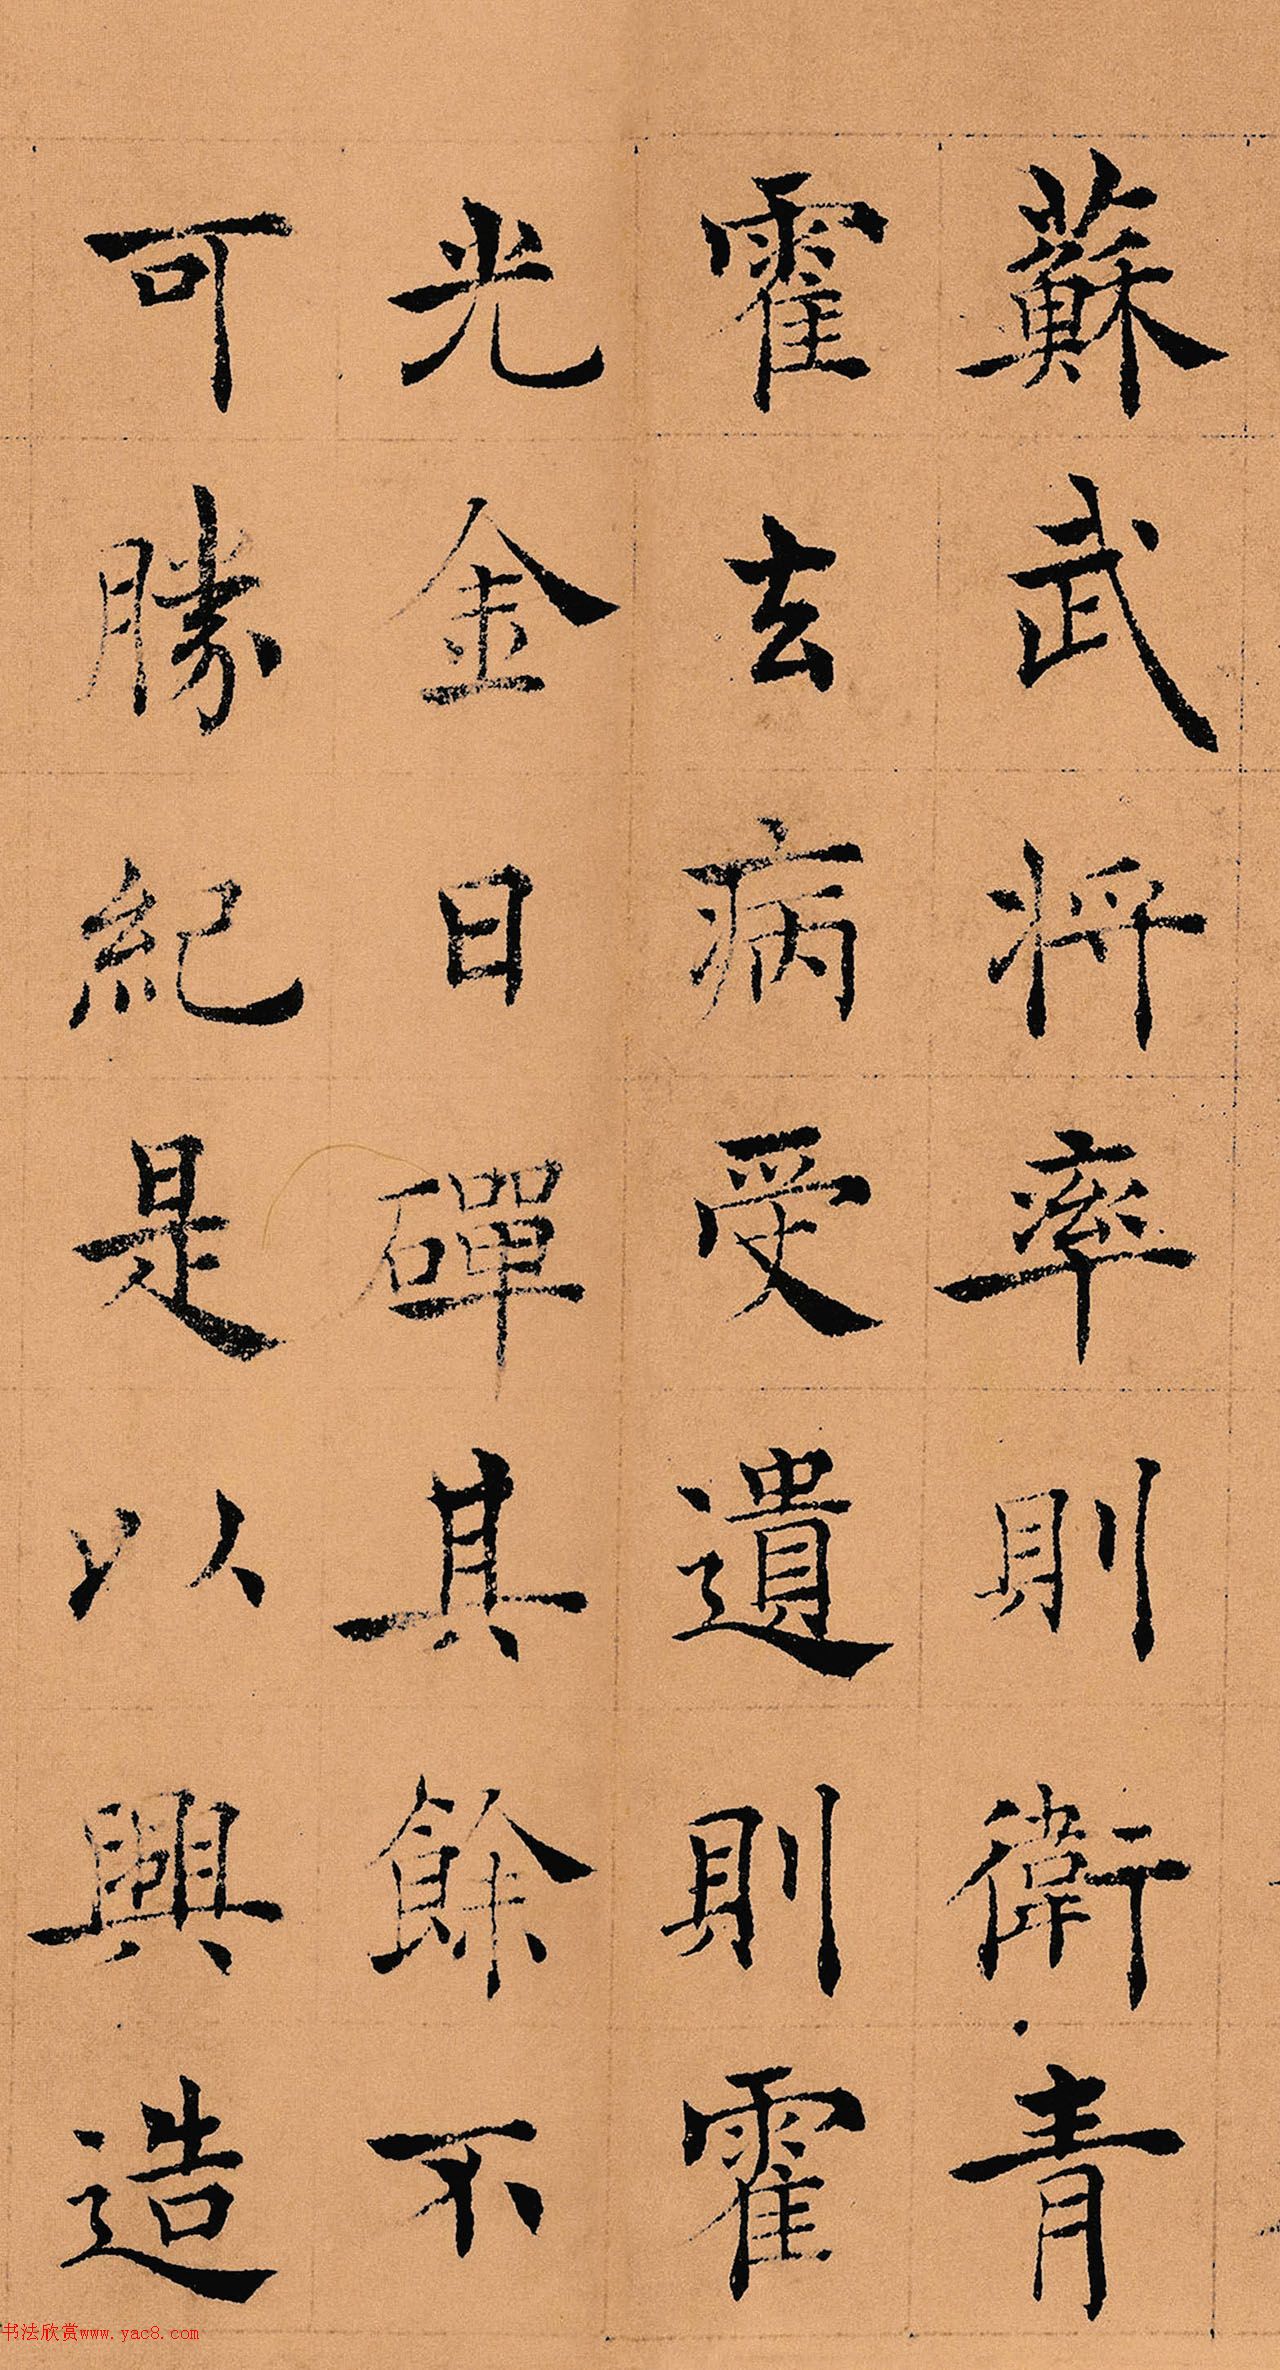 蘇武將率則衛青
霍去病受遺則霍
光金日磾其餘不
可勝紀是以興造
书法欣赏www.yac8.com